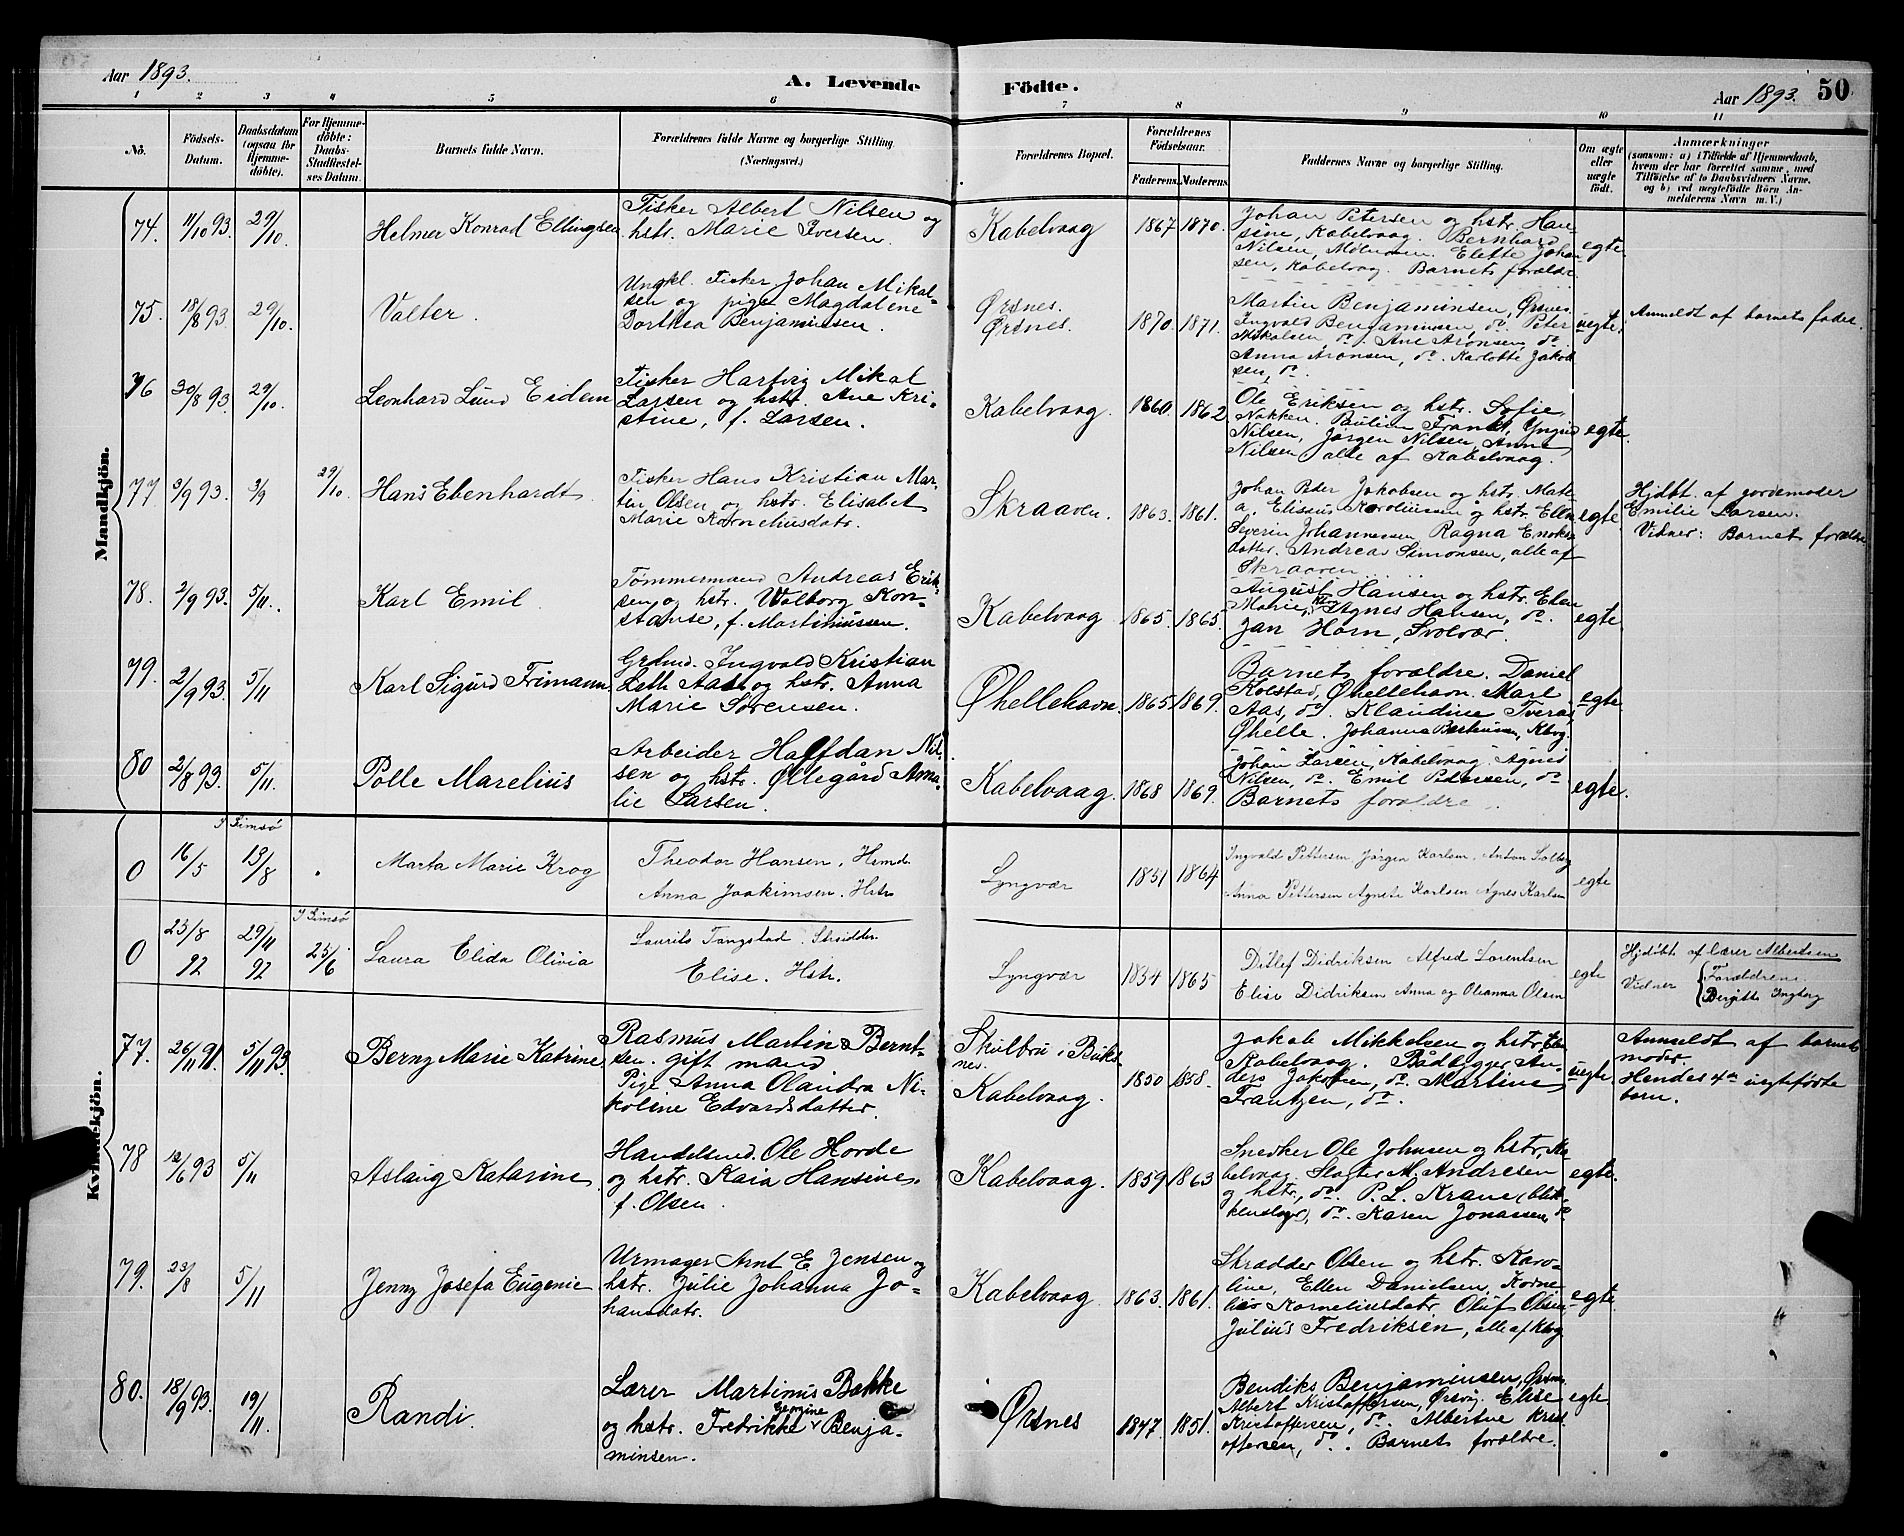 Aar 1893.
A. Levende Födte.
Aar 1893. 50
1 2 3 4 5 6 7 8 9 10 11
No.
Födsels-
Datum.
Daabsdatum
(ogsaa for
Hjemme-
döbte).
For Hjemme-
döbte:
Daabs-
Stadfæstel-
ses Datum.
Barnets fulde Navn.
Forældrenes fulde Navne og borgerlige Stilling
(Næringsvei.)
Forældrenes Bopæl.
Forældrenes
Födselsaar.
Faderens. Moderens.
Faddernes Navne og borgerlige Stilling.
Om ægte
eller
uægte
födt.
Anmærkninger
(saasom: a) i Tilfælde af Hjemmedaab,
hvem der har forrettet samme, med
Tilföielse af to Daabsvidners Navne,
og b) ved uægtefödte Börn An-
melderens Navn m. V.)
Mandkjön.
74. 11/10 93. 29/10. Helmer Konrad Ellingsen
Fisker Albert Nilsen og
hstr. Marie Iversen.
Kabelvaag 1867 1870.
Johan Petersen og hstr. Han-
sine, Kabelvaag. Bernhard
Nilsen, Elette Johan-
sen, Kabelvaag. Barnets forældre.
egte.
75. 18/8 93. 29/10. Valter.
Ungkl. Fisker Johan Mikal-
sen og pige Magdalene
Dorthea Benjaminsen.
Ørsnes.
Ørsnes. 1870. 1871.
Martin Benjaminsen, Ørsnes.
Ingvald Benjaminsen, do. Peter
Mikalsen, do. Ane Aronsen, do.
Anna Aronsen, do. Karlotte Jakob-
sen, do.
uegte. Anmeldt af barnets fader.
76 30/8 93. 29/10. Leonhard Lund Eidem
Fisker Hartvig Mikal
Larsen og hstr. Ane Kri-
stine, f. Larsen.
Kabelvaag. 1860. 1862.
Ole Eriksen og hstr. Sofie
Nokken. Pauline Frantz,
Nilsen, Jørgen Nilsen, Anna
Nilsen alle af Kabelvaag.
egte.
77 3/9 93. 3/9 29/10. Hans Ebenhardt.
Fisker Hans Kristian Mar-
tin Olsen og hstr. Elisabet
Marie Korneliusdatr.
Skraaven. 1863. 1861.
Johan Peder Jakobsen og hstr. Mate-
a. Elisæus Karolinssen og hstr. Ellen
Severin Johannessen, Ragna Enoks-
datter. Andreas Simonsen, alle af
Skraaven.
egte
Hjdbt. af jordemoder
Emilie Larsen.
Vidner: Barnets forældre
78. 2/9 93. 5/11. Karl Emil.
Tømmermand Andreas Erik-
sen og hstr. Walborg Kon-
stanse, f. Martinussen.
Kabelvaag 1865. 1865.
August Hansen og hstr. Elen
Marie, Kbvg. Agnes Hansen, do.
Jan Horn, Svolvær.
egte.
79. 2/9 93. 5/11 Karl Sigurd Frimann.
Grdmd. Ingvald Kristian
Leth Aas og hstr. Anna
Marie Sørensen.
Øhellehavn. 1865 1869.
Barnets forældre. Daniel
Kolstad, Øhellehavn. Mare
Aas, do. Klaudine Tveraas
Øhelle. Johanna Berthinsen, Kbvg.
egte.
80 2/8 93. 5/11. Polle Marelius
Arbeider Halfdan Nil-
sen og hstr. Øllegård Ama-
lie Larsen.
Kabelvaag. 1868 1869.
Johan Larsen, Kabelvaag. Agnes
Nilsen, do. Emil Pedersen, do.
Barnets forældre.
egte.
Kvindekjön.
I Gimsø
0 16/5 13/8 Marta Marie Krog
Theodor Hansen. Hmd.
Anna Joakimsen. Hstr.
Lyngvær 1851 1864
Ingvald Pettersen Jørgen Karlsen. Anton Solberg
Anna Pettersen Agnete Karlsen Agnes Karlsen
egte
I Gimsø
0 23/8 92 29/11 92 25/6 Laura Elida Olivia
Laurits Tangstad. Skrædder.
Elise. Hstr.
Lyngvær 1834 1865
Ditlef Didriksen Alfred Lorentsen
Elise Didriksen Anna og Oleanna Olsen
egte
Hjdøbt af lærer Albertsen
Vidner Forældrene
Bergitte Ingberg
77. 26/11 91. 5/11 93. Berny Marie Katrine
Rasmus Martin Bernt-
sen. gift mand
Pige Anna Olandra Ni-
koline Edvardsdatter.
Skulbru i Buks-
nes.
Kabelvaag. 1850 1858.
Jakob Mikkelsen og hstr. Elen
Kabelvaag. Bådbygger An-
ders Jakobsen, do. Martine
Frantzen, do.
uegte.
Anmeldt af barnets
moder.
Hendes 4de uegtefødte
barn.
78 12/6 93 5/11 Aslaug Katarine.
Handelsmd. Ole Horde
og hstr. Kaia Hansine,
f. Olsen.
Kabelvaag. 1859 1863
Snedker Ole Johnsen og hstr. Ka-
belvaag. Slagter M. Andresen
og hstr., do. P. L. Krane (blik-
kenslager), do. Karen Jonassen, do.
egte.
79. 23/8 5/11 Jenny Josefa Eugenie
Urmager Arnt E. Jensen og
hstr. Julie Johanna Jo-
hansdatr.
Kabelvaag 1863. 1861.
Skrædder Olsen og hstr. Karo-
line, Ellen Danielsen, Korne-
lia Korneliusdatr. Oluf Olsen
Julius Fredriksen, alle af Kbvg.
egte.
80. 18/9 93. 19/11. Randi.
Lærer Martinus Bakke
og hstr. Fredrikke Georgine Benja-
minsen.
Ørsnes 1847. 1851.
Bendiks Benjaminsen, Ørsnes.
Albert Kristoffersen, Ørsvåg. Elise
Kristoffersen, do. Albertine Krist-
offersen, do. Barnets forældre.
egte